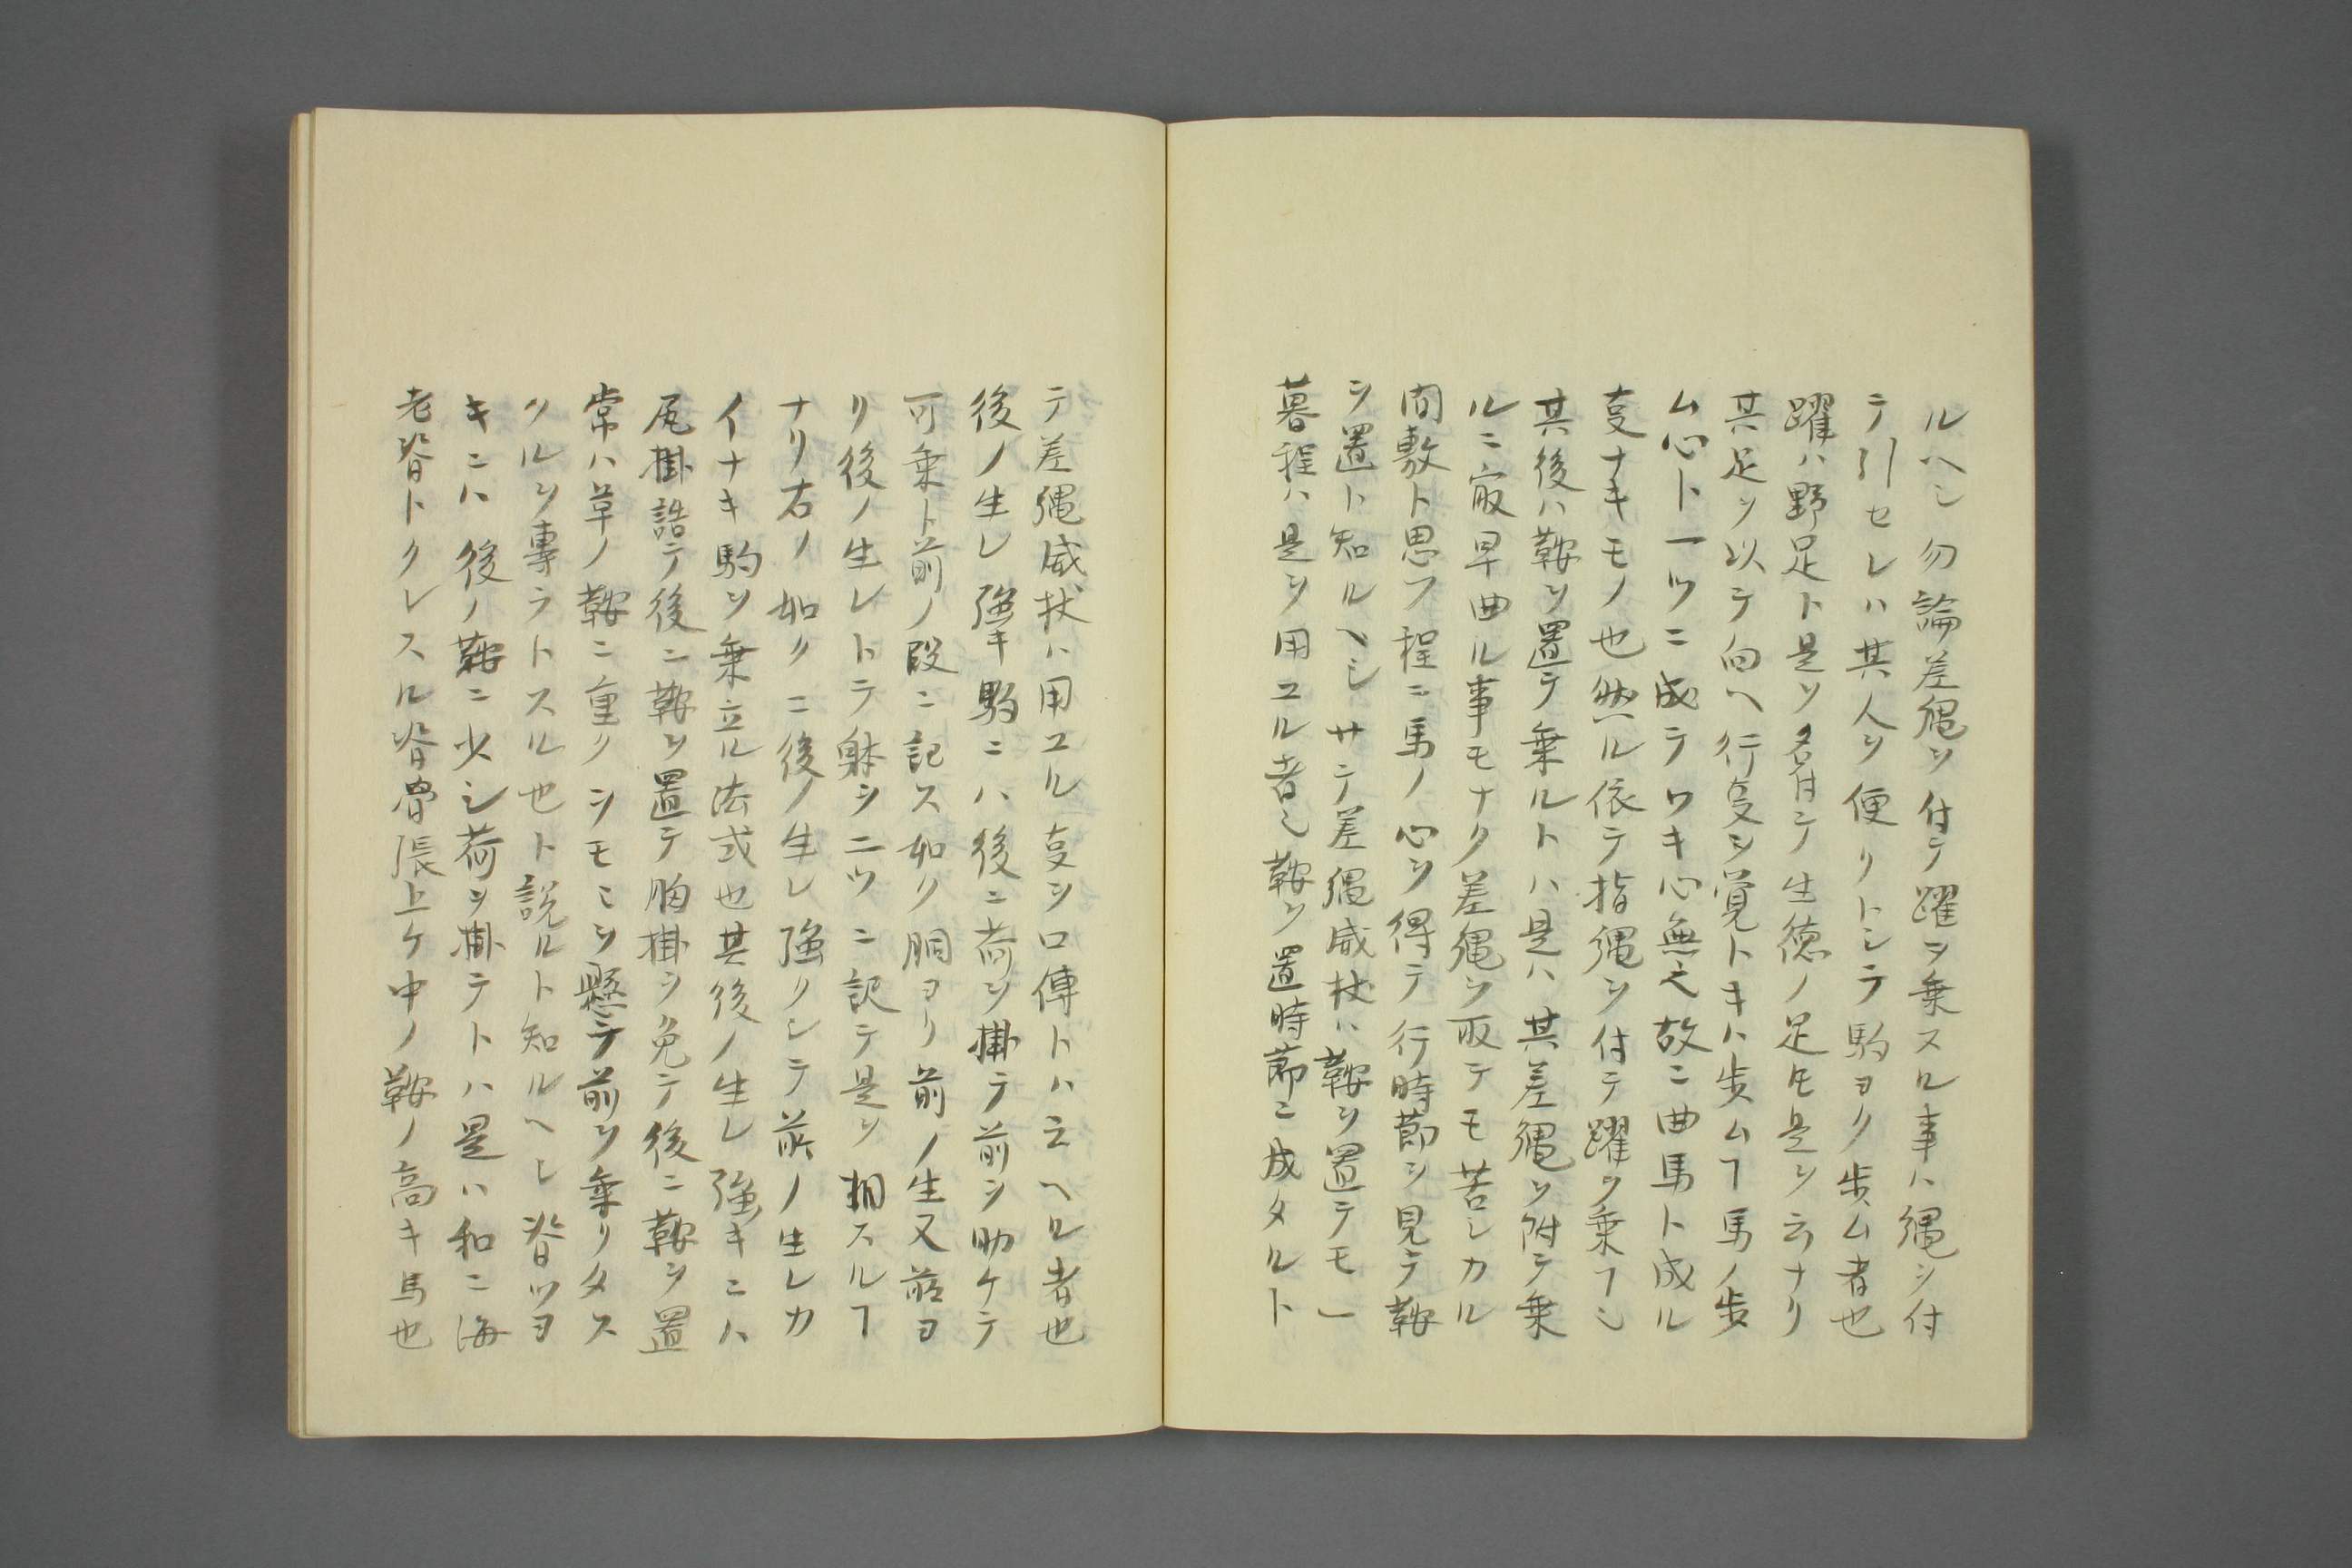 ルヘシ勿論差縄ヲ付テ躍ヲ乗スル事ハ縄ヲ付
テ引セレハ其人ヲ便リトシテ駒ヨク歩ム者也
躍ハ野足ト是ヲ名付テ生徳ノ足モ是ヲ云ナリ
其足ヲ以テ向ヘ行叓ヲ覚トキハ歩ムヿ馬ノ歩
ム心ト一ツニ成テワキ心無之故ニ曲馬ト成ル
叓ナキモノ也然ル依テ指縄ヲ付テ躍ヲ乗ヿ也
其後ハ鞍ヲ置テ乗ルトハ是ハ其差縄ヲ附テ乗
ルニ最早曲ル事モナク差縄ヲ取テモ苦シカル
間敷ト思フ程ニ馬ノ心ヲ得テ行時莭ヲ見テ鞍
ヲ置ト知ルヘシサテ差縄威杖ハ鞍ヲ置テモ一
暮程ハ是ヲ用ユル者也鞍ヲ置時莭ニ成タルト
テ差縄威杖ハ用ユル叓ヲ口傳トハ云ヘル者也
後ノ生レ強キ駒ニハ後ニ荷ヲ掛テ前ヲ助ケテ
可乗ト前ノ段ニ記ス如ク胴ヨリ前ノ生又前ヨ
リ後ノ生レトテ躰ヲ二ツニ記テ是ヲ相スルヿ
ナリ右ノ如クニ後ノ生レ強クシテ前ノ生レカ
イナキ駒ヲ乗立ル法式也其後ノ生レ強キニハ
尾掛詰テ後ニ鞍ヲ置テ胸掛ヲ免テ後ニ鞍ヲ置
常ハ草ノ鞍ニ重クヲモミヲ懸テ前ヲ乗リタス
クルヲ専ラトスル也ト説ルト知ルヘシ背ツヨ
キニハ後ノ鞍ニ少シ荷ヲ掛テトハ是ハ和ニ海
老背トクレスル背骨張上ケ中ノ鞍ノ高キ馬也